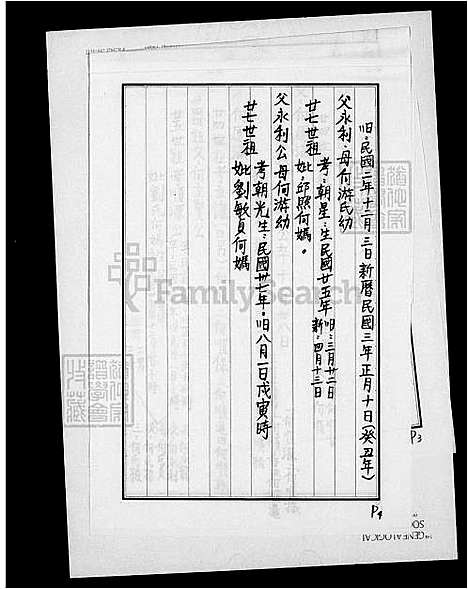 旧:民國二年十二月三日新曆民國三年正月十日(癸丑年)
父永利.母何游氏幼
廿七世祖
考:朝星:生民國廿五年旧:三月廿二日
新:四月十三日
妣:邱照何媽。
父永利公母何游幼
廿七世祖
考朝光生:民國卅七年.旧八月一日戊寅時
妣劉敏貞何媽
P3
P4
FamilySearch
GENEALOGICAL
SO